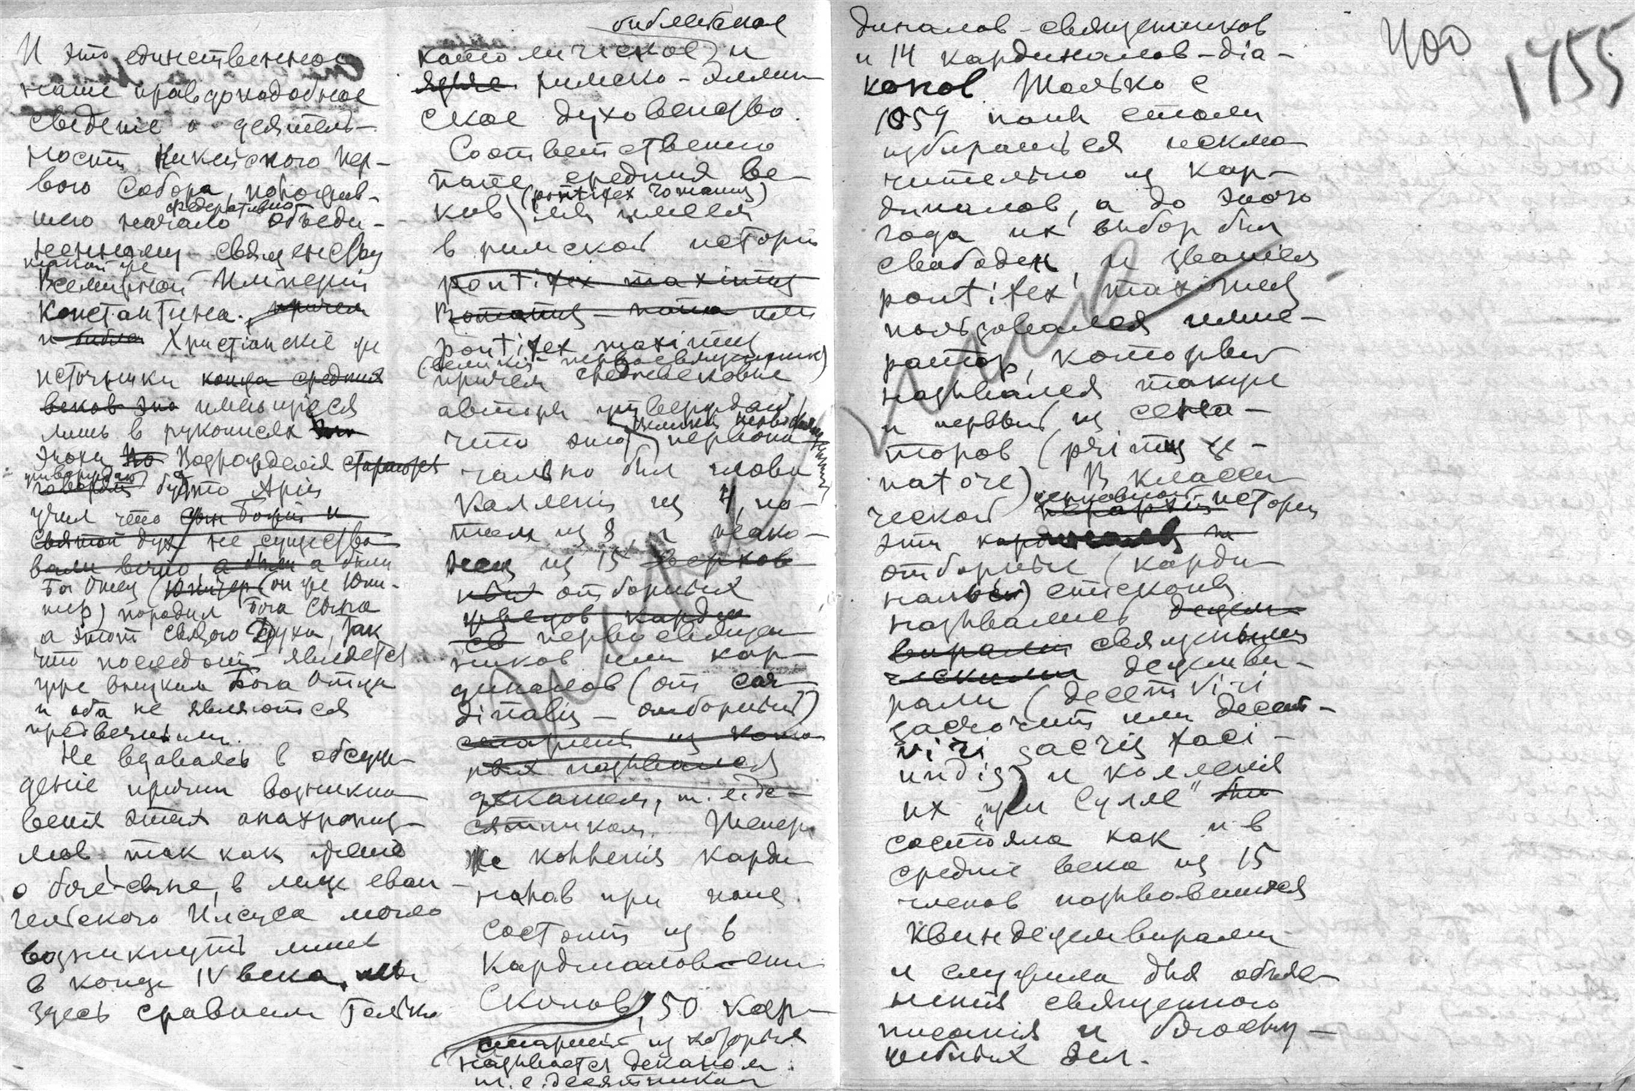 И это единственное
наше правдоподобное
сведение о деятель-
ности Никейского Пер-
вого Собора, положив-
шего начало федеративно объеди-
ненному священству
такой же
Всемирной Империи
Константина. причем
и были Христианскіе же
источники конца средних
веков это имеющіеся
лишь в рукописях
эпохи Возрожденія стараются
утверждать будто Арій
учил что сын божий и
святой дух не существо-
вали вечно а были а были
бог Отец (Юпитер (он же Юпи-
тер) породил бога Сына
а этот святого Духа, так
что последний является
уже внуком Бога Отца
и оба не являются
предвечными.
Не вдаваясь в обсуж-
деніе причин возникно-
венія этих анахрониз-
мов, так как идея
о боге-сыне, в лице еван-
гельского Иисуса могла
возникнуть лишь
в конце IV века, мы
здесь сравним только
библейское
католическое и
римско-эллин
ское духовенство.
Соответственно
папе средних ве-
ков (pontifex romanus) мы имеем
в римской исторіи
pontifex maximus
Romanus — папа или
pontifex maximus
(великий первосвященник)
причем средневековые
авторы утверждают
что этот великий первосвящ
первона-
чально был глова
коллегіи из 4, по-
том из 8, и нако-
нец из 15
отборных
жрецов карди
со первосвящен-
ников или кар-
диналов (от car-
dinalis — отборный)
старший из кото-
рых назывался
деканом, т.е. де-
сятником. Теперь
же коллегія карди
налов при папе
состоит из 6
Кардиналов-епи-
скопов, 50 кар-
старший из которых
называется деканом
т.е. десятником
диналов-священников
и 14 кардиналов-діа-
конов Только с
1059 папы стали
избираться исклю-
чительно из кар-
диналов, а до этого
года их выбор был
свободен, и званием
pontifex maximus
пользовался импе-
ратор, который
назывался также
и первый из сена-
торов (princeps se-
natore) В класси-
ческой церковной исторіи
эти кардиналы т
отборные (карди-
нальные) епископы
назывались децем-
вирами священными
децемви-
рами (decemviri
sacrorum или decem-
viri sacris faci-
undis) и коллегія
их „при Сулле“
состояла как и в
средніе века из 15
членов называвшихся
Квиндецемвирами
и служила для объяс-
ненія священного
писанія и богослу-
жебных дел.
400
1455